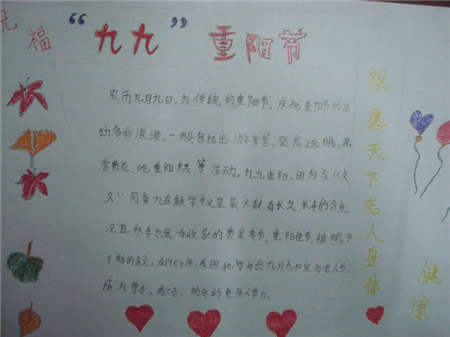 祝福
“九九”重阳节
农历九月九日,为传统的重阳节。庆祝重阳节的活
动多彩浪漫,一般包括出游赏景、登高远眺、观
赏菊花、吃重阳糕等活动。九九重阳,因为与“久
久”同音九在数字中又是最大数有长久长寿的含意,
况且秋季也是一年收获的黄金季节,重阳佳节,
了新的含义,在1989年,我国把每年的九月九日定为老人节,
成为尊老、助老的老年人节日。
祝愿天下老人身体
健康